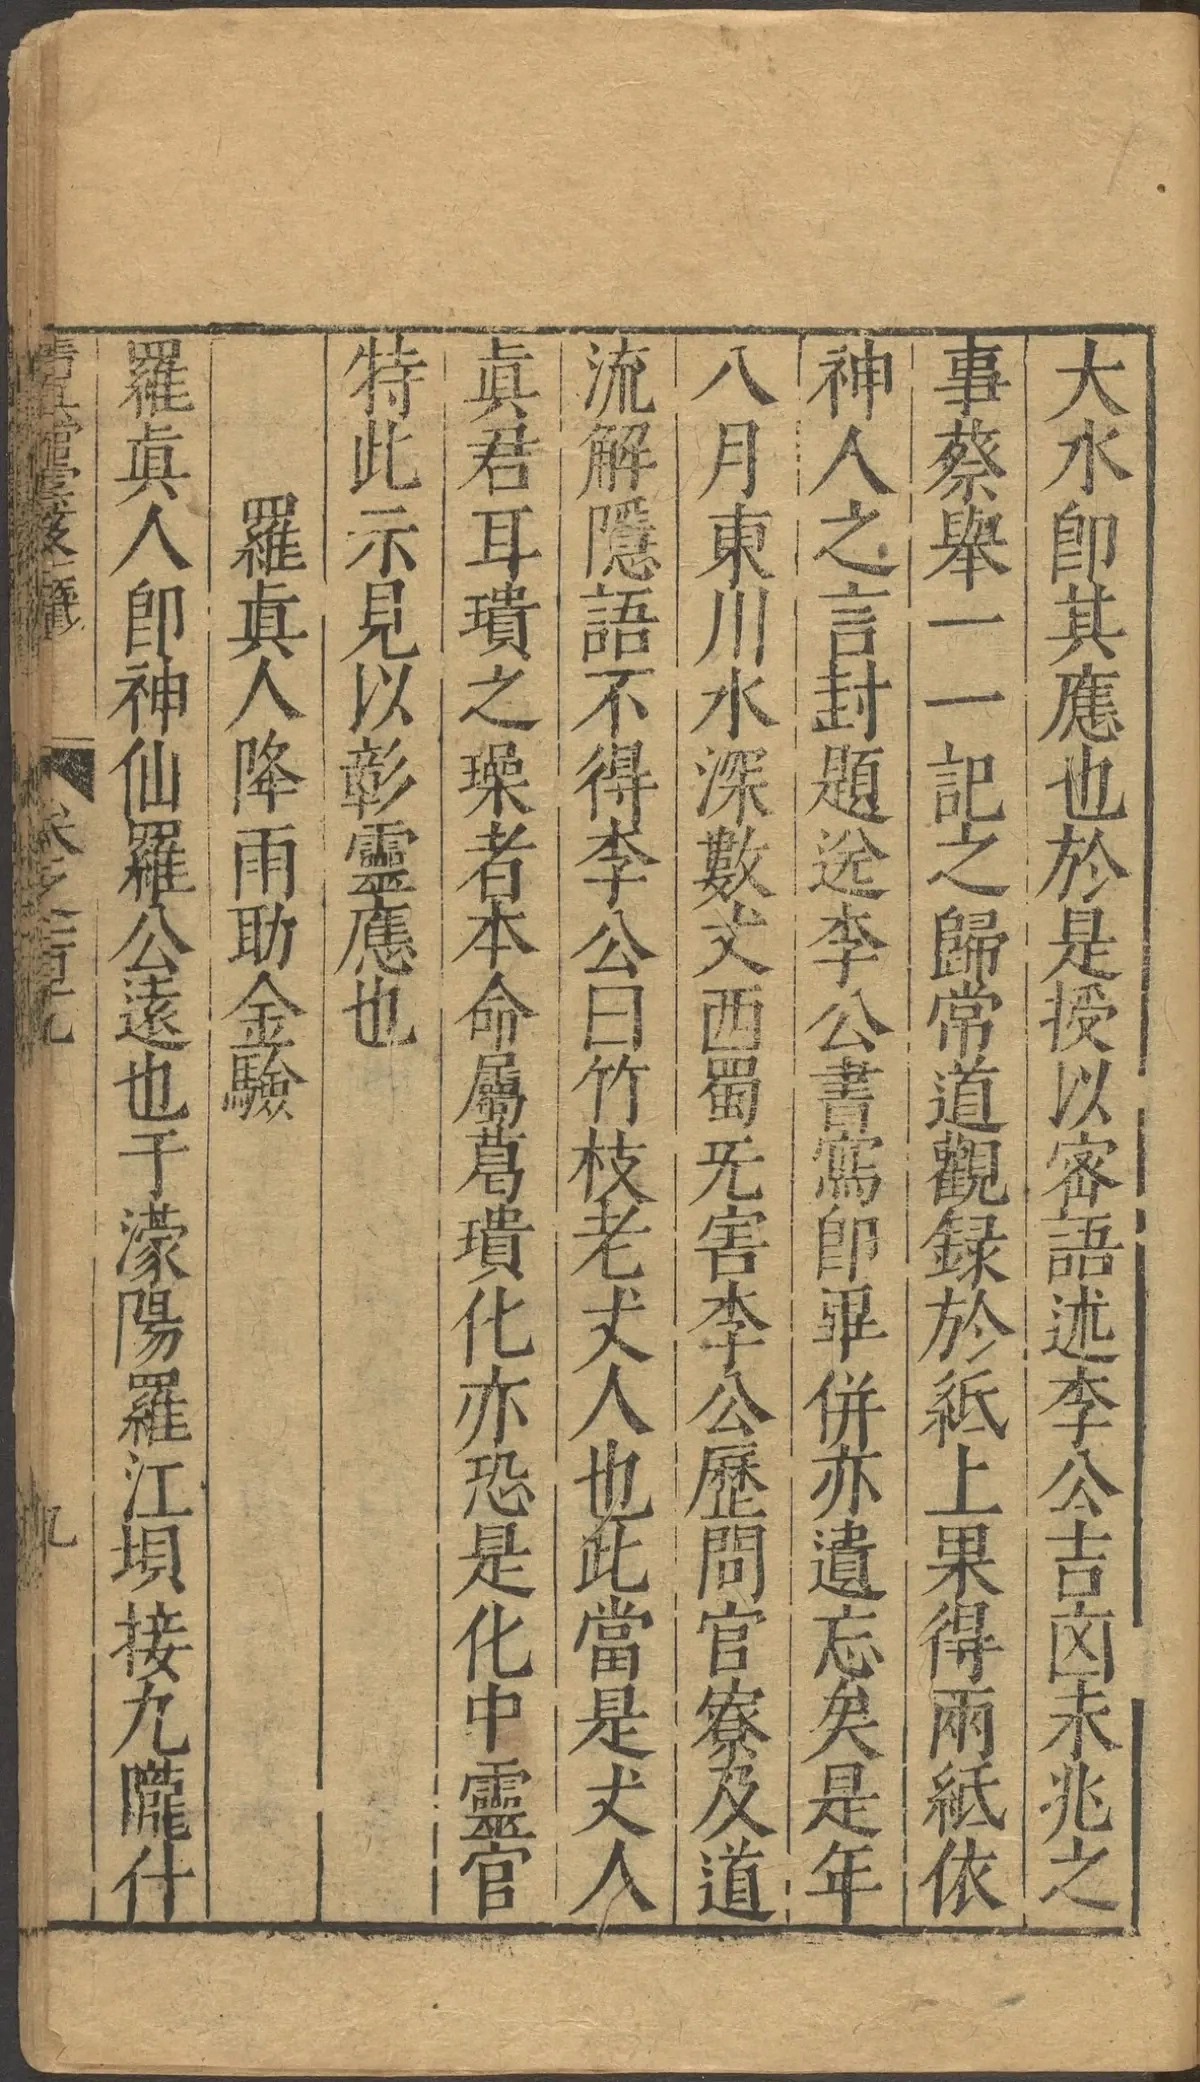 大水卽其應也於是授以密語述李公吉凶未兆之
事蔡舉一一記之歸常道觀録於紙上果得兩紙依
神人之言封題送李公書寫卽畢併亦遺忘矣是年
八月東川水深數丈西蜀旡害李公歷問官寮及道
流解隱語不得李公曰竹枝老丈人也此當是丈人
眞君耳瑱之璪者本命屬葛璝化亦恐是化中靈官
特此示見以彰靈應也
羅眞人降雨助金驗
羅眞人卽神仙羅公遠也于濛陽羅江埧接九隴什